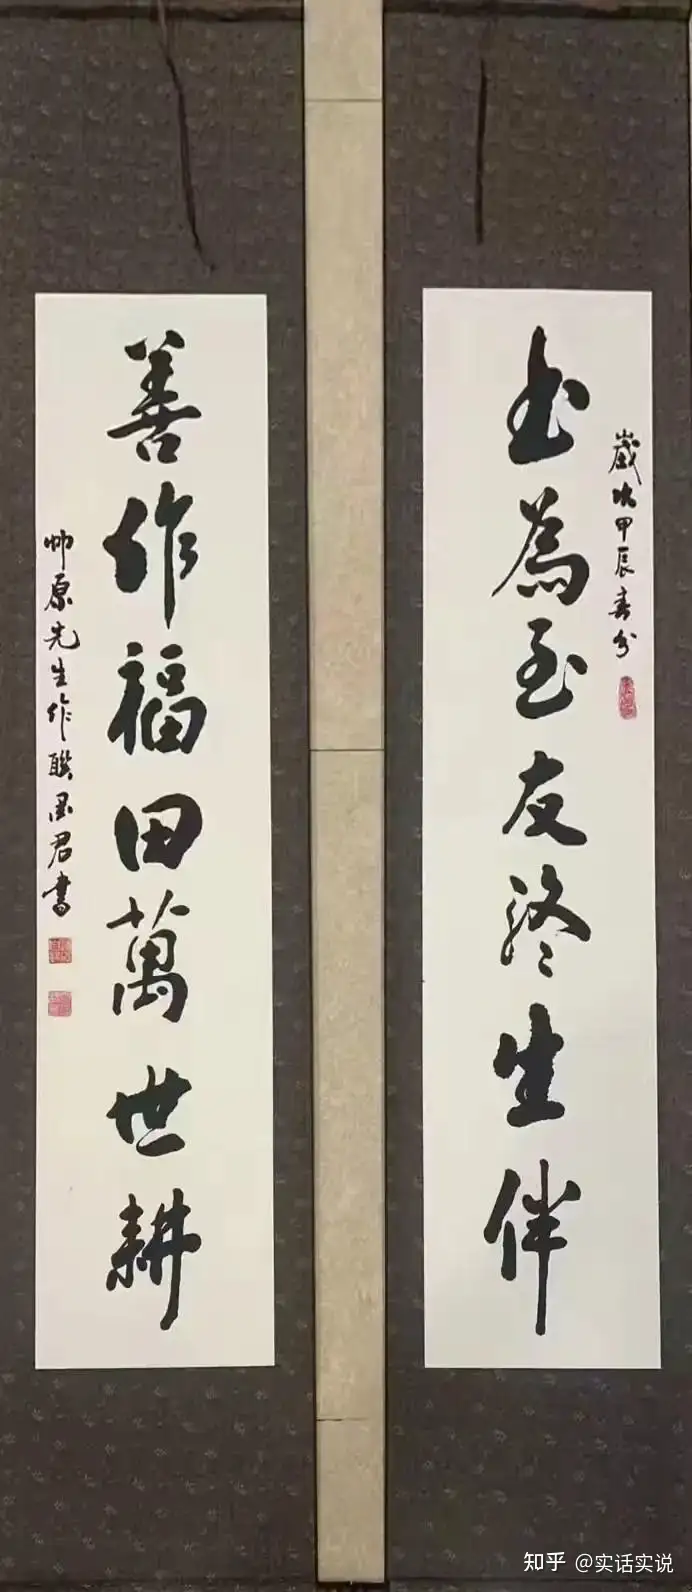 歲次甲辰春分
书為至友终生伴
善作福田萬世耕
帅原先生作联墨君書
知乎 @实话实说